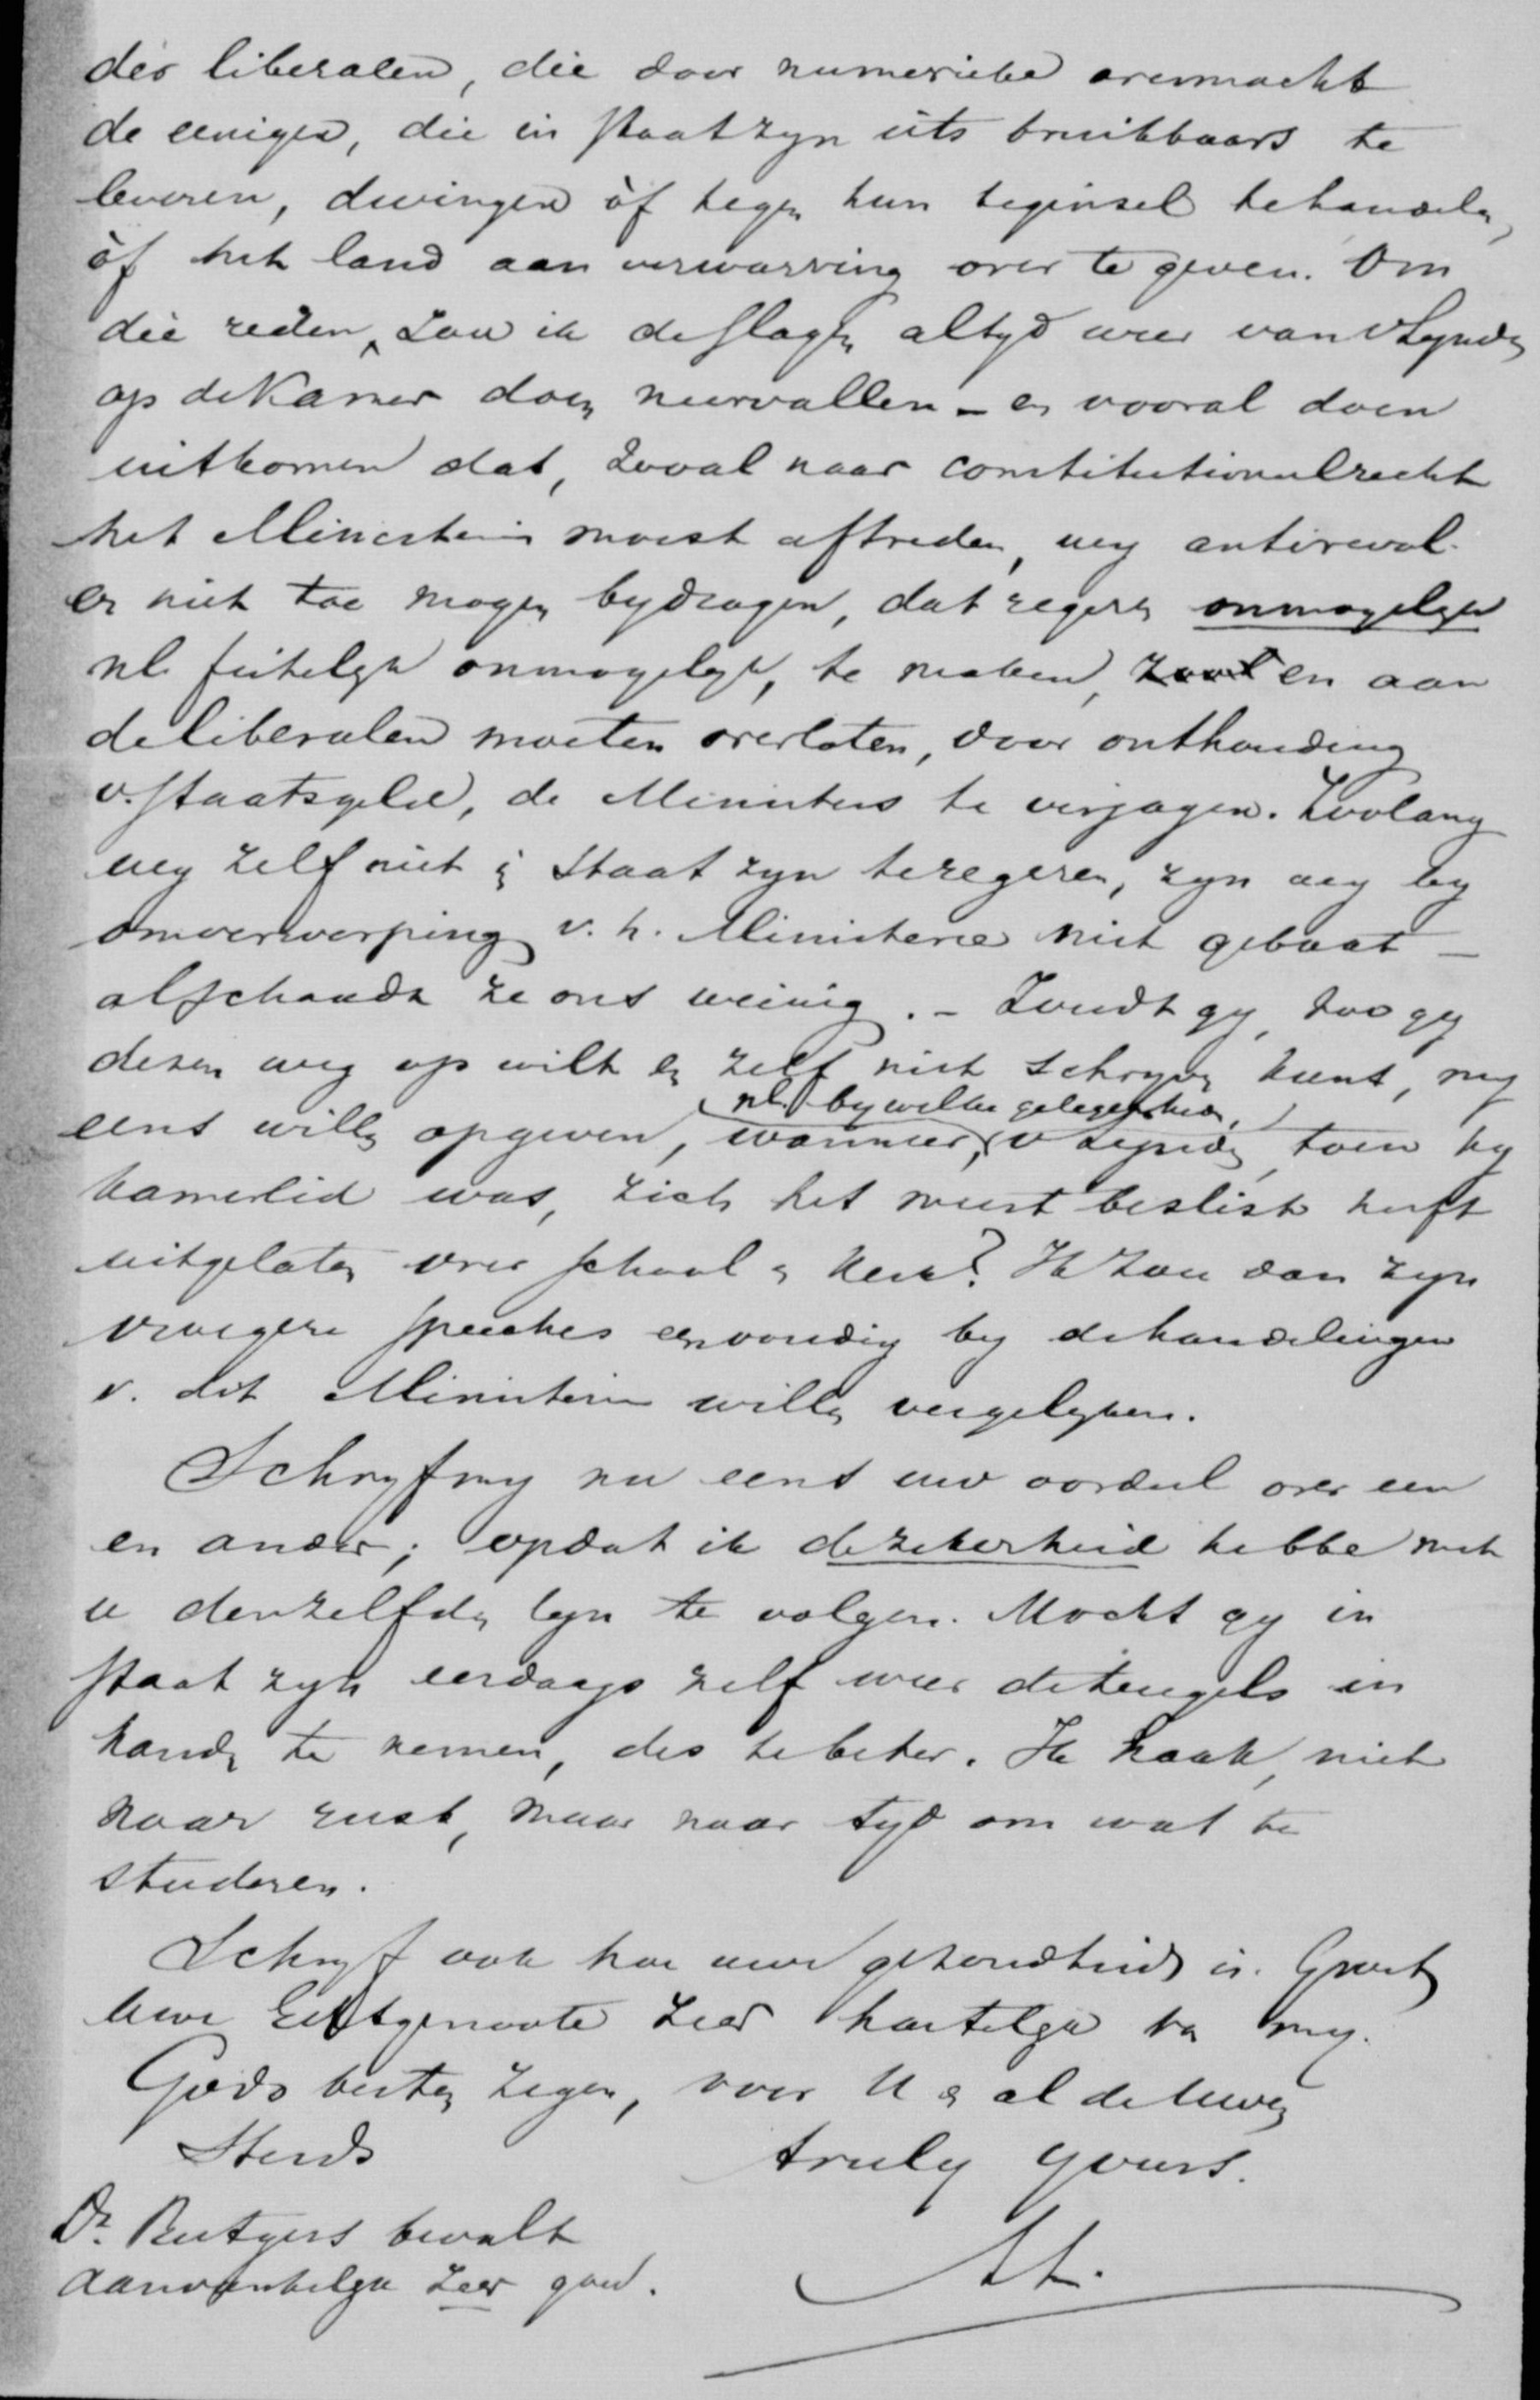 der liberalen, die door numerieke overmacht
de eenigen, die in staat zyn iets bruikbaars te
leveren, dwingen òf tegen hun beginsel te handelen,
òf het land aan verwarring over te geven. Om
die reden, zou ik de slagen altyd weer van v Lynden
op de Kamer doen neervallen – en vooral doen
uitkomen dat, zooal naar constitutioneelrecht
het Ministerie moest aftreden, wy antirevol.
er niet toe mogen bydragen, dat regeren onmogelyk
nl. feitelyk onmogelyk, te maken, en aan
de liberalen moeten overlaten, door onthouding
v. staatsgeld, de Ministers te verjagen. Zoolang
wy zelf niet in staat zyn te regeren, zyn wy by
omverwerping v. h. Ministerie niet gebaat –
al schaadt ze ons weinig. – Zoudt gy, zoo gy
dezen weg op wilt en zelf niet schryven kunt, my
eens willen opgeven, wanneer, (nl. by welke gelegenheden,) v Lynden, toen hy
kamerlid was, zich het meest beslist heeft
uitgelaten over school en kerk? Ik zou dan zyn
vroegere speeches eenvoudig by de handelingen
v. dit Ministerie willen vergelyken.
Schryf my nu eens uw oordeel over een
en ander; opdat ik de zekerheid hebbe met
u denzelfden lyn te volgen. Mocht gy in
staat zyn eerdaags zelf weer de teugels in
handen te nemen, des te beter. Ik haak, niet
naar rust, maar naar tyd om wat te
studeren.
Schryf ook hoe uwe gezondheid is. Groet
uwe Echtgenoote zeer hartelyk van my.
Gods besten zegen, voor U en al de Uwen
Steeds truly yours.
Dr. Rutgers bevalt
aanvankelyk zeer goed.